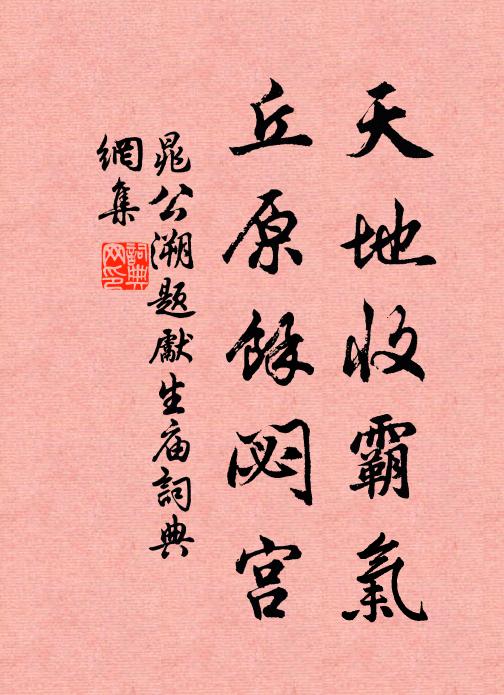 天地收霸氣
丘原餘閟宮
晁公溯題獻生庙詞典
網集
詞典网印